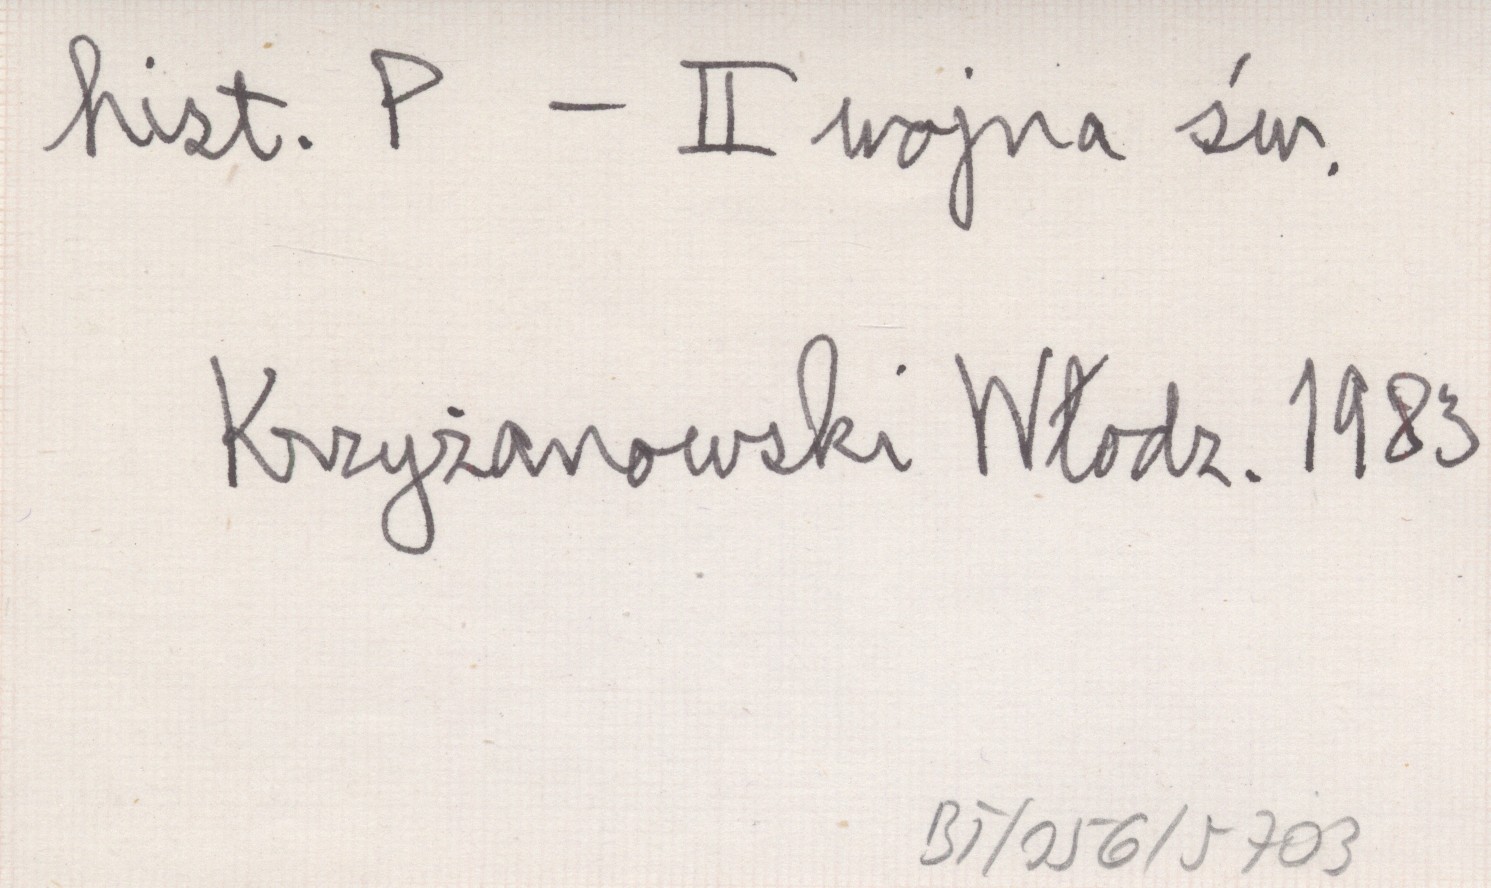 hist. P — II wojna św.
Krzyżanowski Włodz. 1983
BT/256/5703